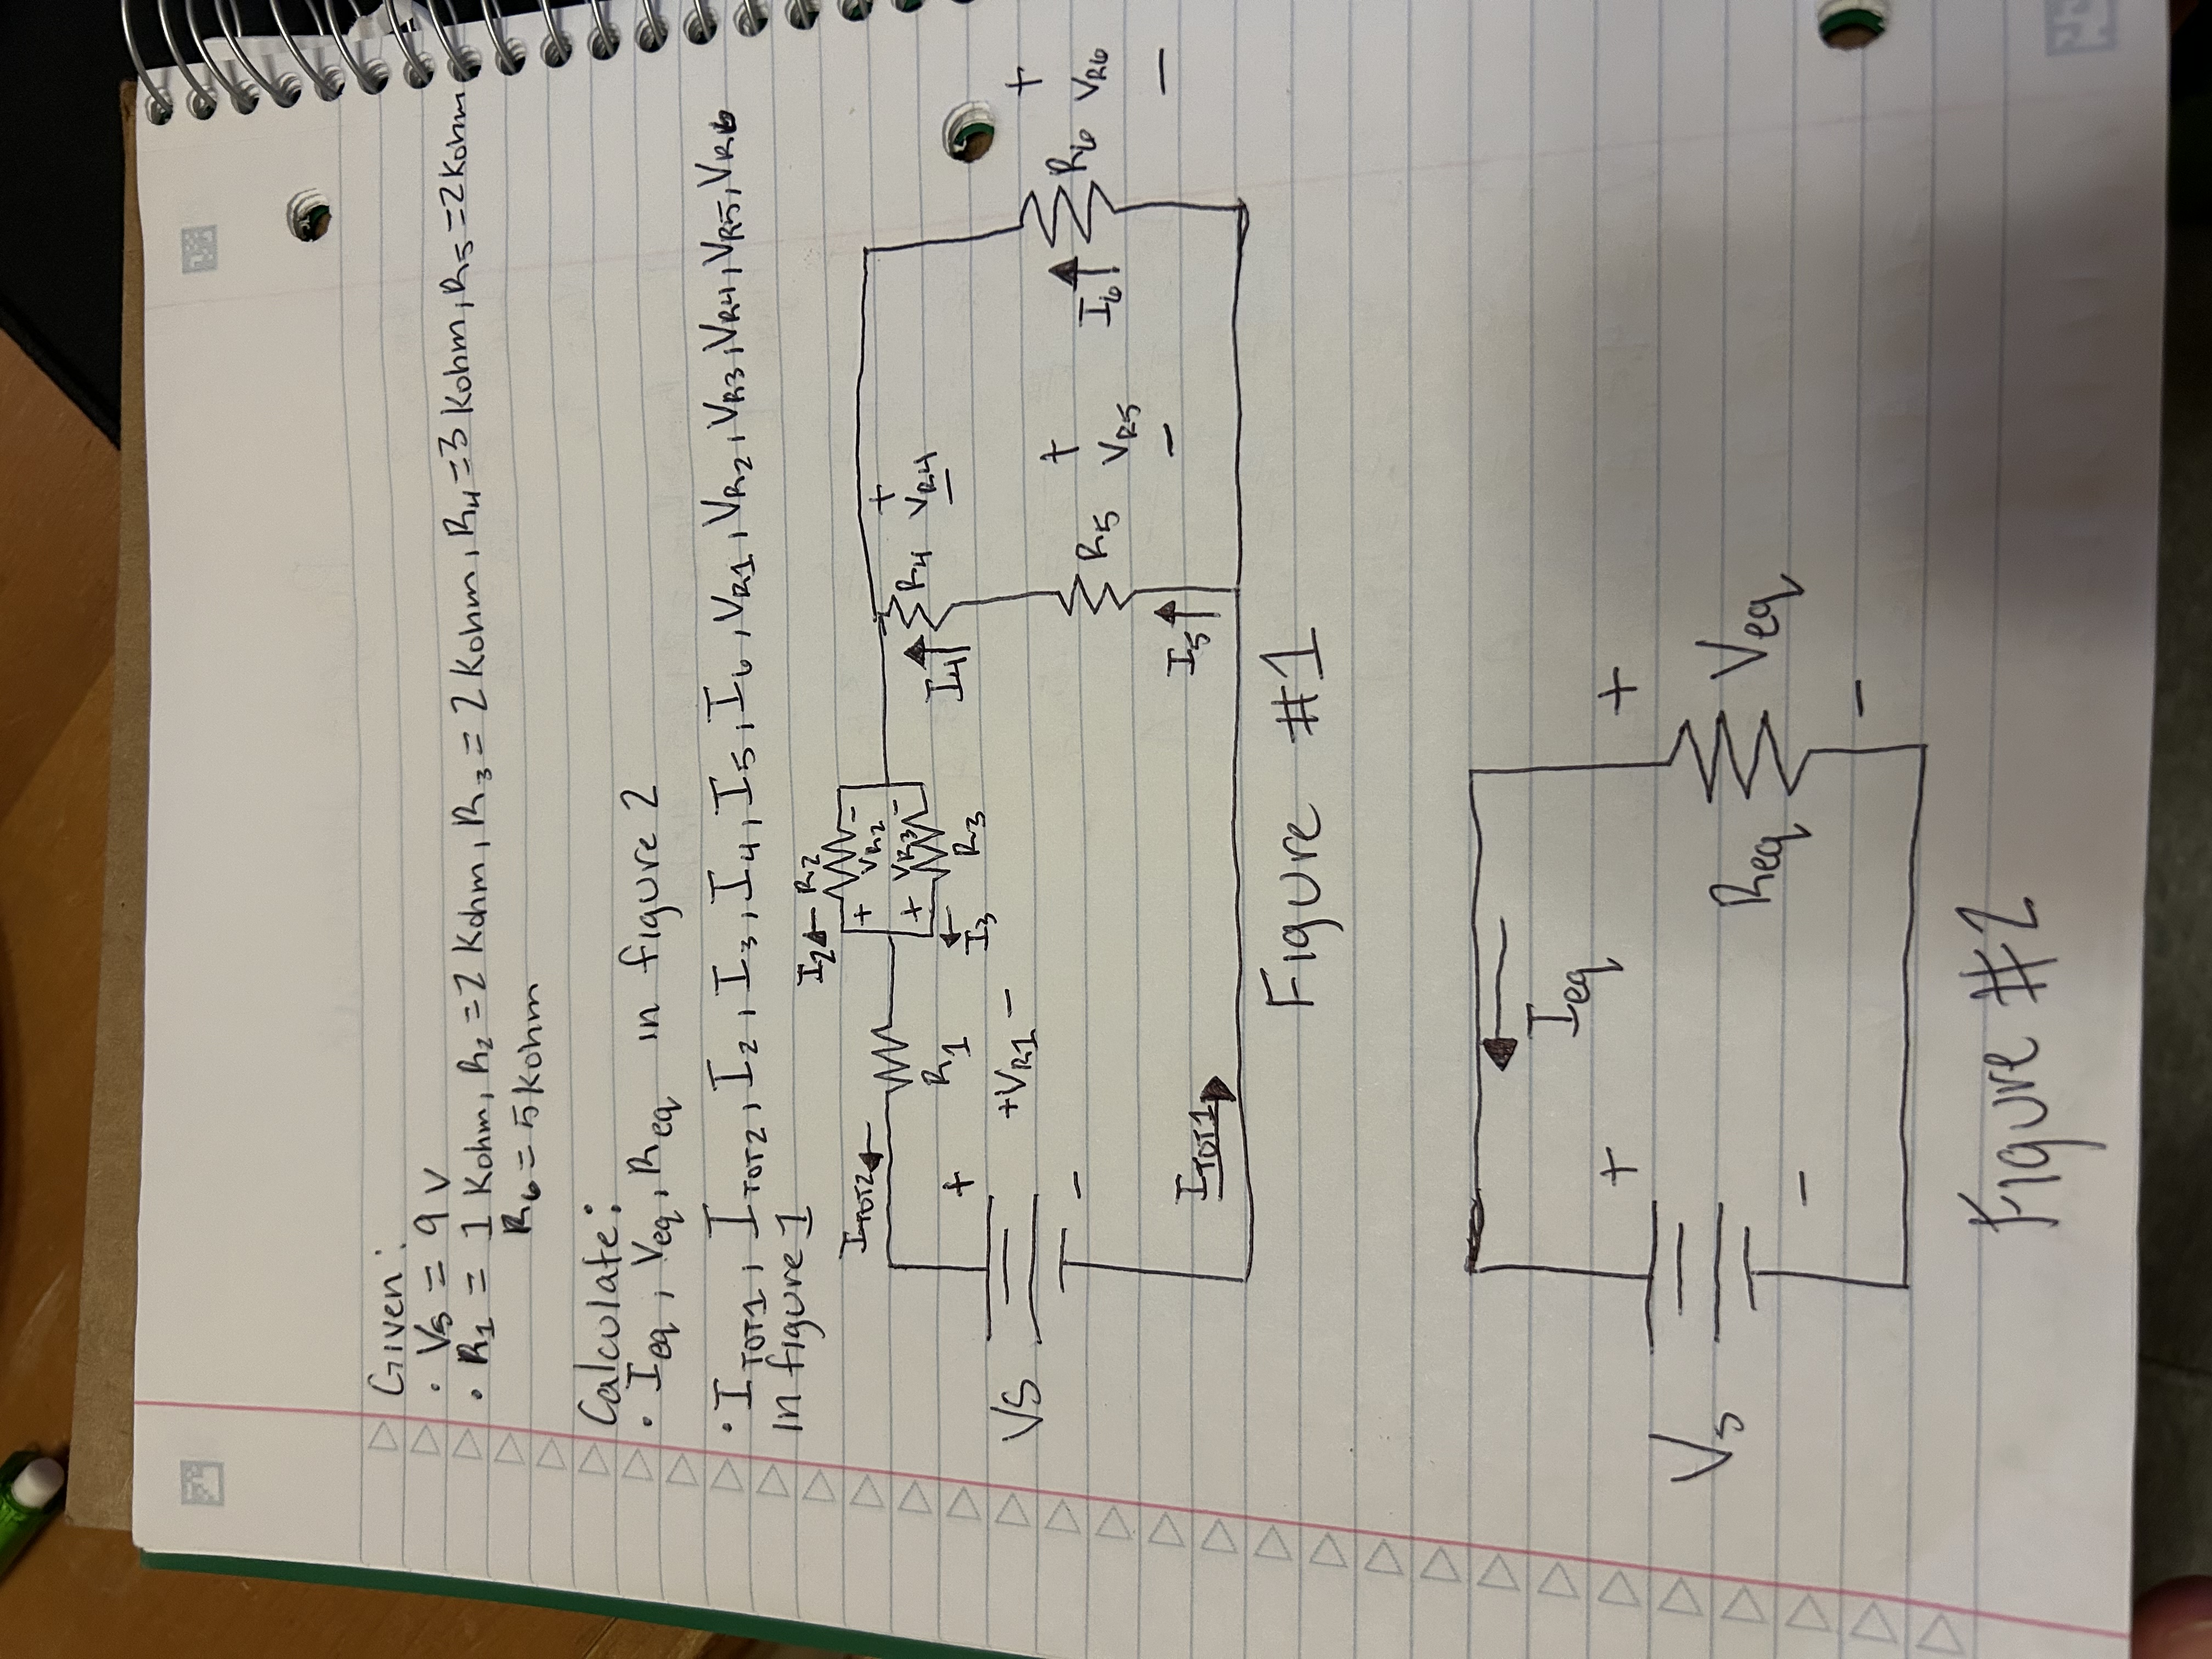 Given:
· Vs = 9 V
· R1 = 1 Kohm, R2 = 2 Kohm, R3 = 2 Kohm, R4 = 3 Kohm, R5 = 2 Kohm
R6 = 5 Kohm
Calculate:
· Ieq, Veq, Req in figure 2
· ITOT1, ITOT2, I2, I3, I4, I5, I6, VR1, VR2, VR3, VR4, VR5, VR6
in figure 1
ITOT2
I2
R2
+ VR2 -
+ VR3 -
I3
R3
R1
+ VR1 -
I4
R4
+ VR4 -
I5
R5
+ VR5 -
I6
R6
+ VR6 -
VS
+
-
ITOT1
Figure #1
Ieq
Vs
+
-
Req
+ Veq -
Figure #2